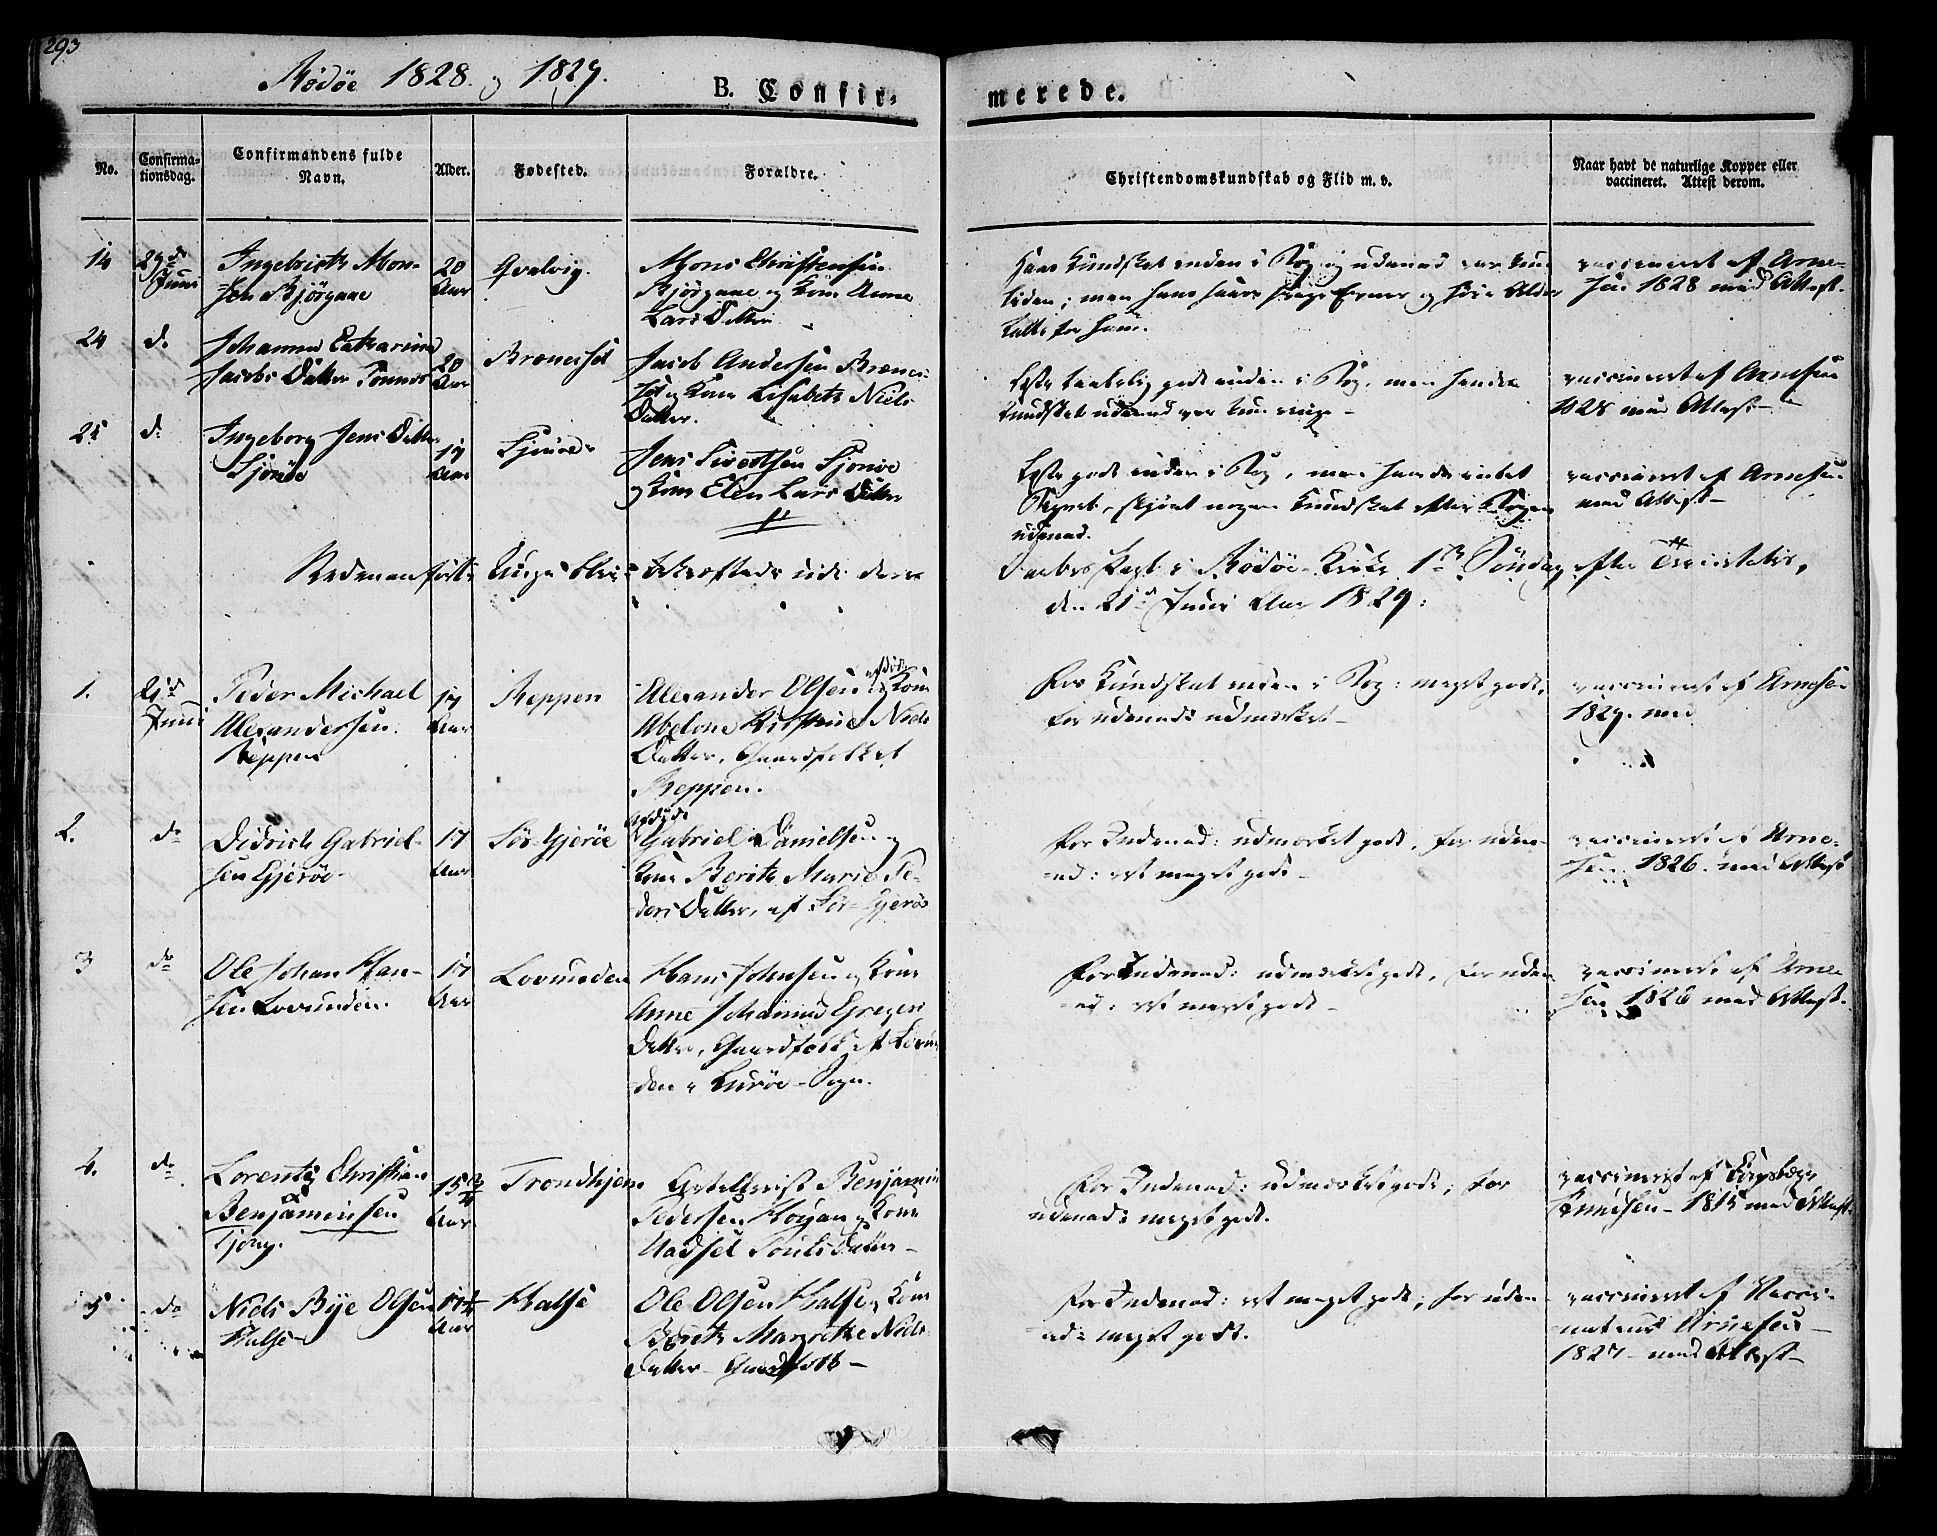 293
Rödöe 1828 og 1829.
B. Confir-
merede.
No.
Confirma-
tionsdag.
Confirmandens fulde
Navn.
Alder.
Fødested.
Forældre.
Christendomskundskab og Flid m. v.
Naar havt de naturlige Kopper eller
vaccineret. Attest derom.
14
29de
Juni
Ingebrigth Mon-
sen Björgane
20
Aar
Qvalvig.
Mons Christensen
Bjørgaae og Kone Anne
Lars Datter
Hans Kundskab inden i Bog og udenad var kun
liden; men hans
vaccineret af Arne-
sen 1828 med Attest.
24
do
Johanna Catharina
Jacobs Datter Tonnes
20
Aar
Brænesset
Jacob Andersen Brænes-
set og Kone Lisabeth Niels
Datter.
Læste taalelig godt inden i Bog, men hendes
Kundskab udenad var kun ringe -
vaccineret af Arnesen
1828 med Attest -
25
do
Ingeborg Jens Datter
Sjonøe
19
Aar
Jens Sivertsen Sjonøe
og Kone Elen Lars Datter
Læste godt inden i Bog, men havde intet
Begreb, skjönt nogen Kundskab efter Bogen
udenad.
vaccineret af Arnesen
med Attest -
Nedenanførte Unge bleve bekræftede udi deres
Daabes Pagt i Rödöe Kirke 1ste Söndag efter Trinitatis,
den 21de Juni Aar 1829:
1.
21de
Juni
Peder Michael
Alexandersen
Reppen
17
Aar
Reppen
Alexander Olsen og afdöde Kone
Abelone Kirstine Niels
Datter, Gaardfolk af
Reppen.
For Kundskab inden i Bog: meget godt,
for udenad: udmærket -
vaccineret af Arnesen
1829. med
2.
do
Didrich Gabriel-
sen Gjeröe
17
Aar
Sör-Gjeröe
Afdöde
Gabriel Danielsen og
Kone Berith Marie Pe-
ders Datter, af Sör-Gjeröe
For Indenad: udmærket godt, for uden-
ad: ret meget godt -
vaccineret af Arne-
sen 1826. med Attest
3
do
Ole Johan Han-
sen Lovunden.
17
Aar
Lovunden
Hans Johnsen og Kone
Anne Johanna Greger
Datter, Gaardfolk af Lovun-
den i Luröe-Sogn.
For Indenad: udmærket godt, for uden-
ad: ret meget godt -
vaccineret af Arne-
sen 1826 med Attest.
4.
do
Lorents Christian
Benjaminsen
Tjong.
15 3/4
Aar
Trondhjem
Benjamin
Pedersen Hoyan og Kone
Poulsdatter -
For Indenad: udmærket godt; for
udenad: meget godt.
vaccineret af
Knudsen - 1815 med Attest.
5
do
Niels Bye Olsen
Halse
17 1/4
Aar
Halse
Ole Olsen Halse og Kone
Bereth Margrethe Niels
Datter - Gaardfolk -
For Indenad: ret meget godt; for uden-
ad: meget godt.
vaccineret af Vacci-
nateur Arnesen -
1827 - med Attest -